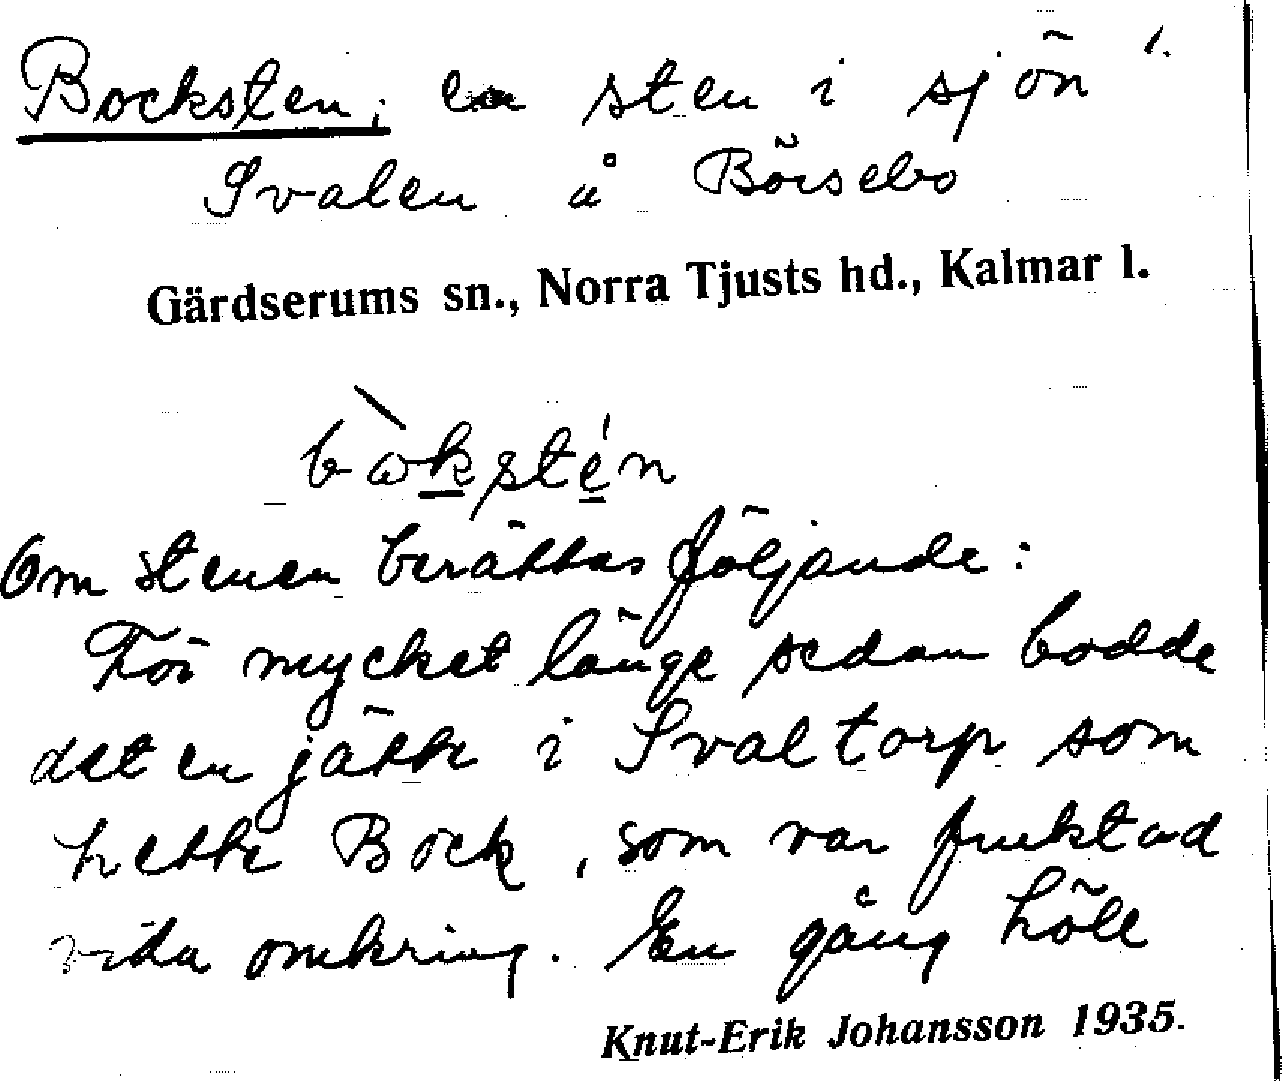 Bocksten; en sten i sjön 1.
Svalen å Börsebo
Gärdserums sn., Norra Tjusts hd., Kalmar l.
bòkstén
Om stenen berättas följande:
För mycket länge sedan bodde
det en jätte i Svaltorp som
hette Bock, som var fruktad
vida omkring. En gång höll
Knut-Erik Johansson 1935.